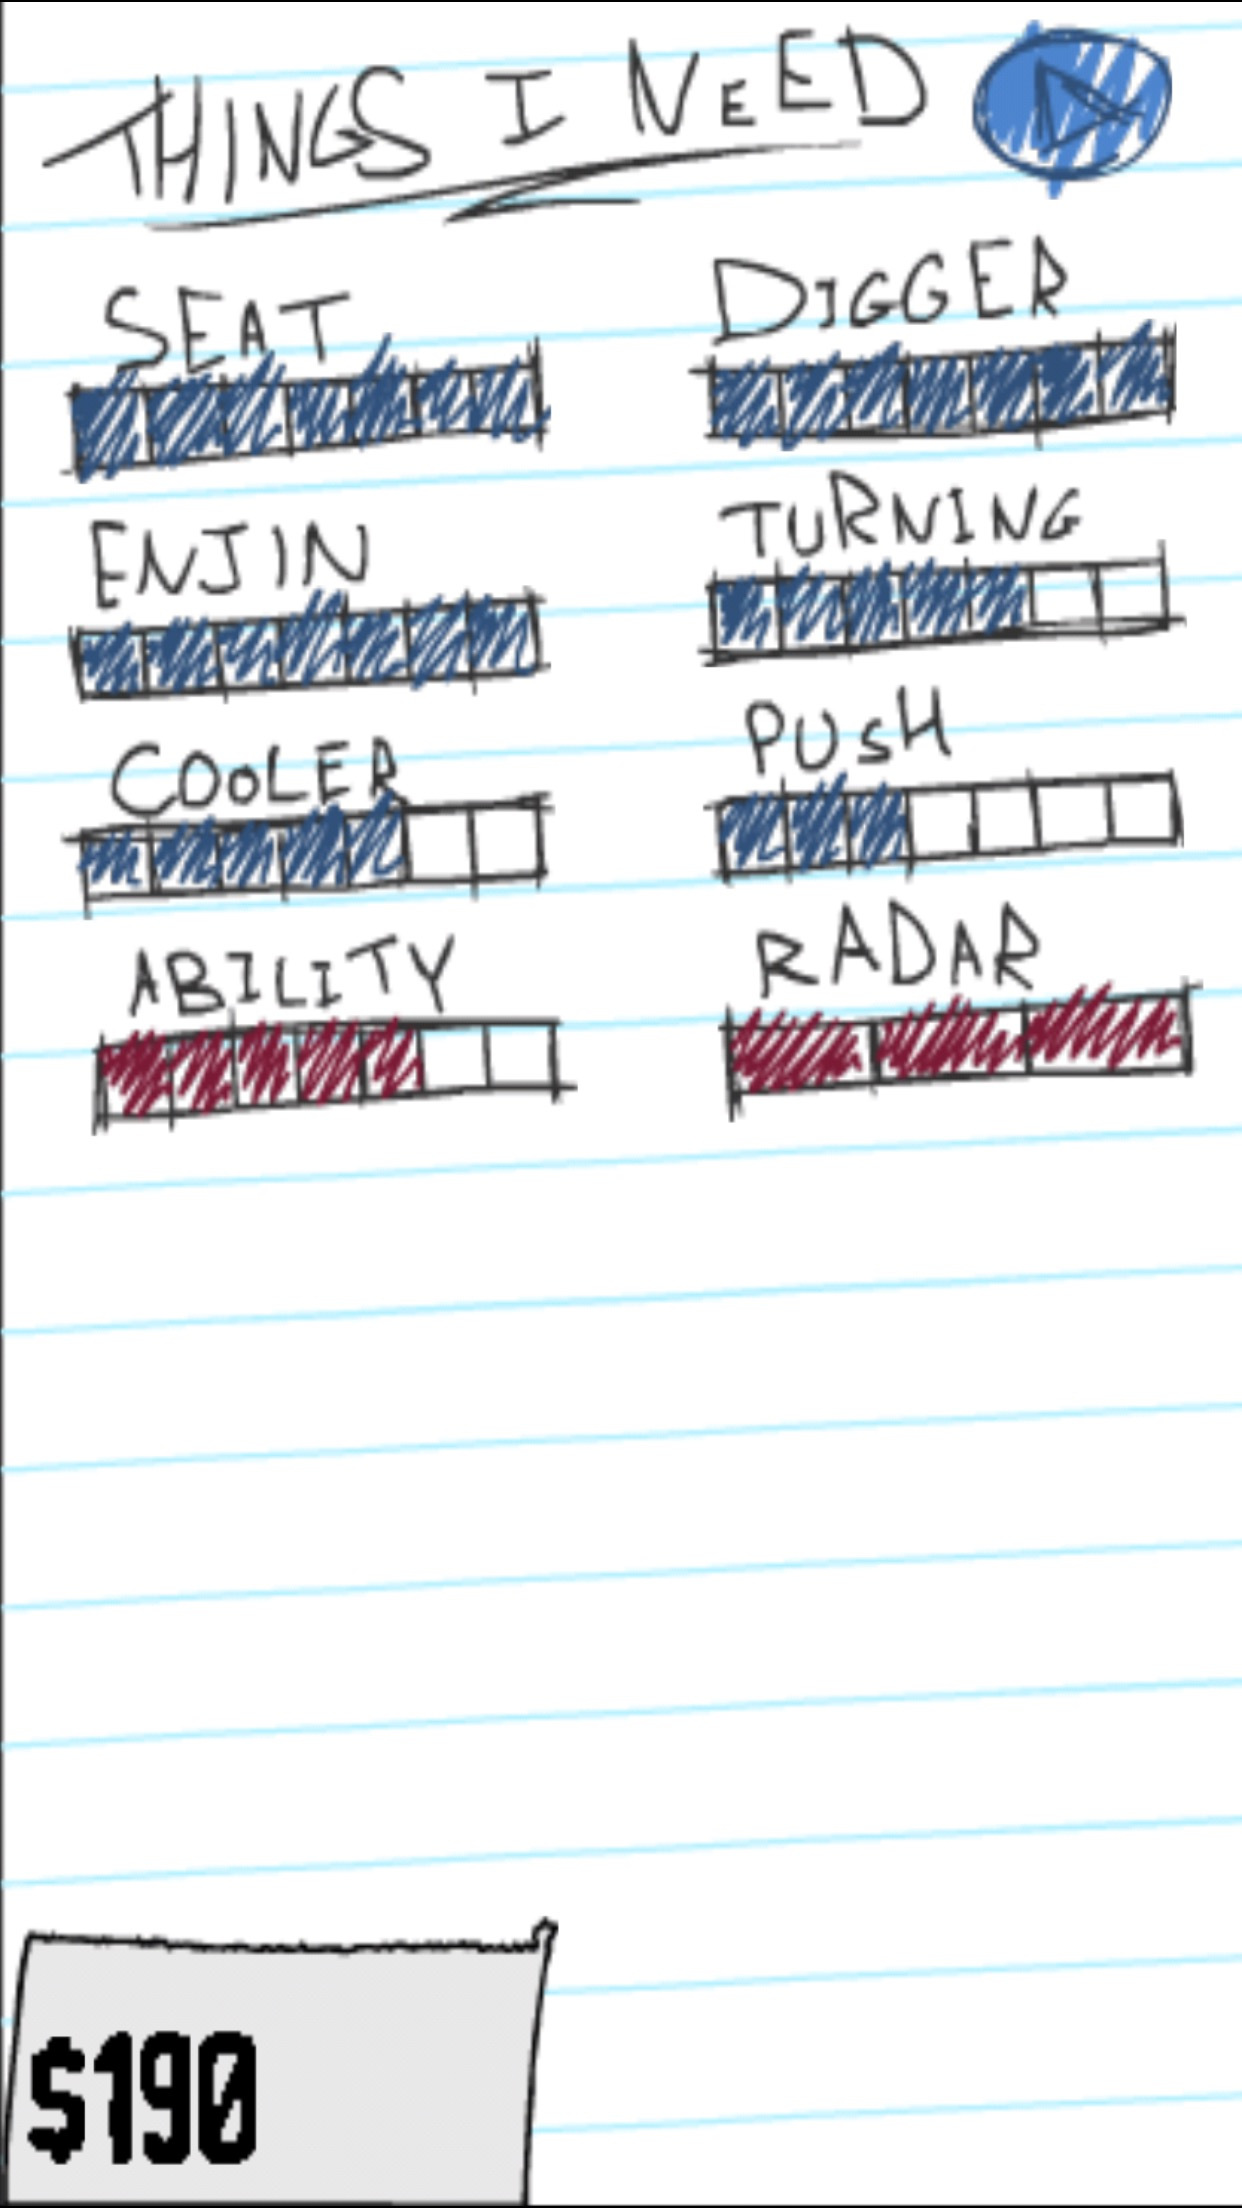 THINGS I NEED
SEAT
DIGGER
ENJIN
TURNING
COOLER
PUSH
ABILITY
RADAR
$190